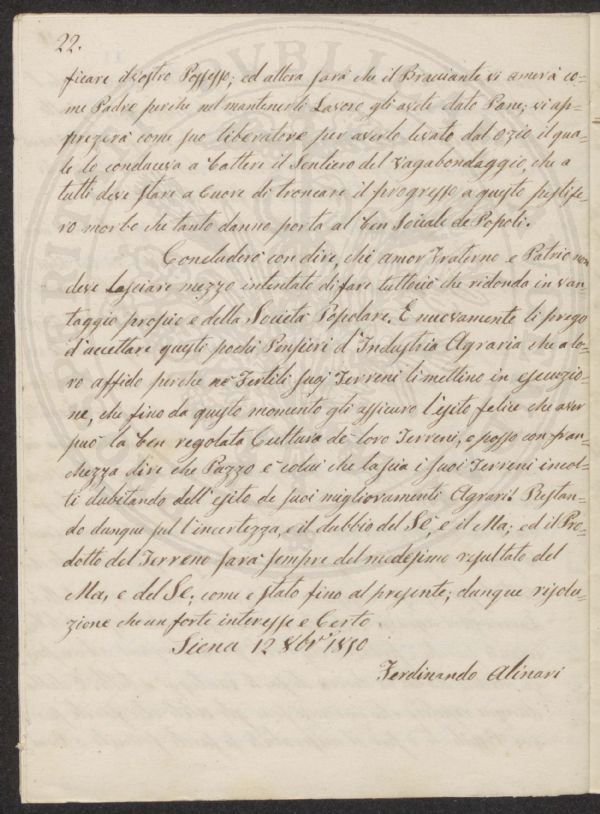 22.
ficare il vostro Possesso; ed allora sarà che il Bracciante vi amerà co=
me Padre perche nel mantenerli Lavoro gli avete dato Pane; vi ap=
prezerà come suo liberatore per averlo levato dal Ozio il qua=
le lo conduceva a battere il Sentiero del vagabondaggio, che a
tutti deve stare a Cuore di troncare il progresso a questo pestife=
ro morbo che tanto danno porta al ben Sociale de Popoli.
Concluderò con dire, chi amor Fraterno e Patrio non
deve lasciare mezzo intentato di fare tuttociò che ridonda in van
taggio propio e della Società Popolare. E nuovamente li prego
d'accettare questi pochi Pensieri d'Industria Agraria che a lo=
ro affido perche ne' Fertili suoi Terreni li mettino in esecuzio=
ne, che fino da questo momento gli assicuro l'esito felice che aver
può la ben regolata Cultura de loro Terreni, e posso con fran=
chezza dire che Pazzo è colui che lascia i suoi Terreni incol=
ti dubitando dell'esito de suoi miglioramenti Agrarii Restan=
do dunque sul l'incertezza, e il dubbio del Se, e il Ma; ed il Pro=
dotto del Terreno sarà sempre del medesimo resultato del
Ma, e del Se, come è stato fino al presente; dunque risolu=
zione che un forte interesse è Certo.
Siena 12 8bre 1850
Ferdinando Alinari